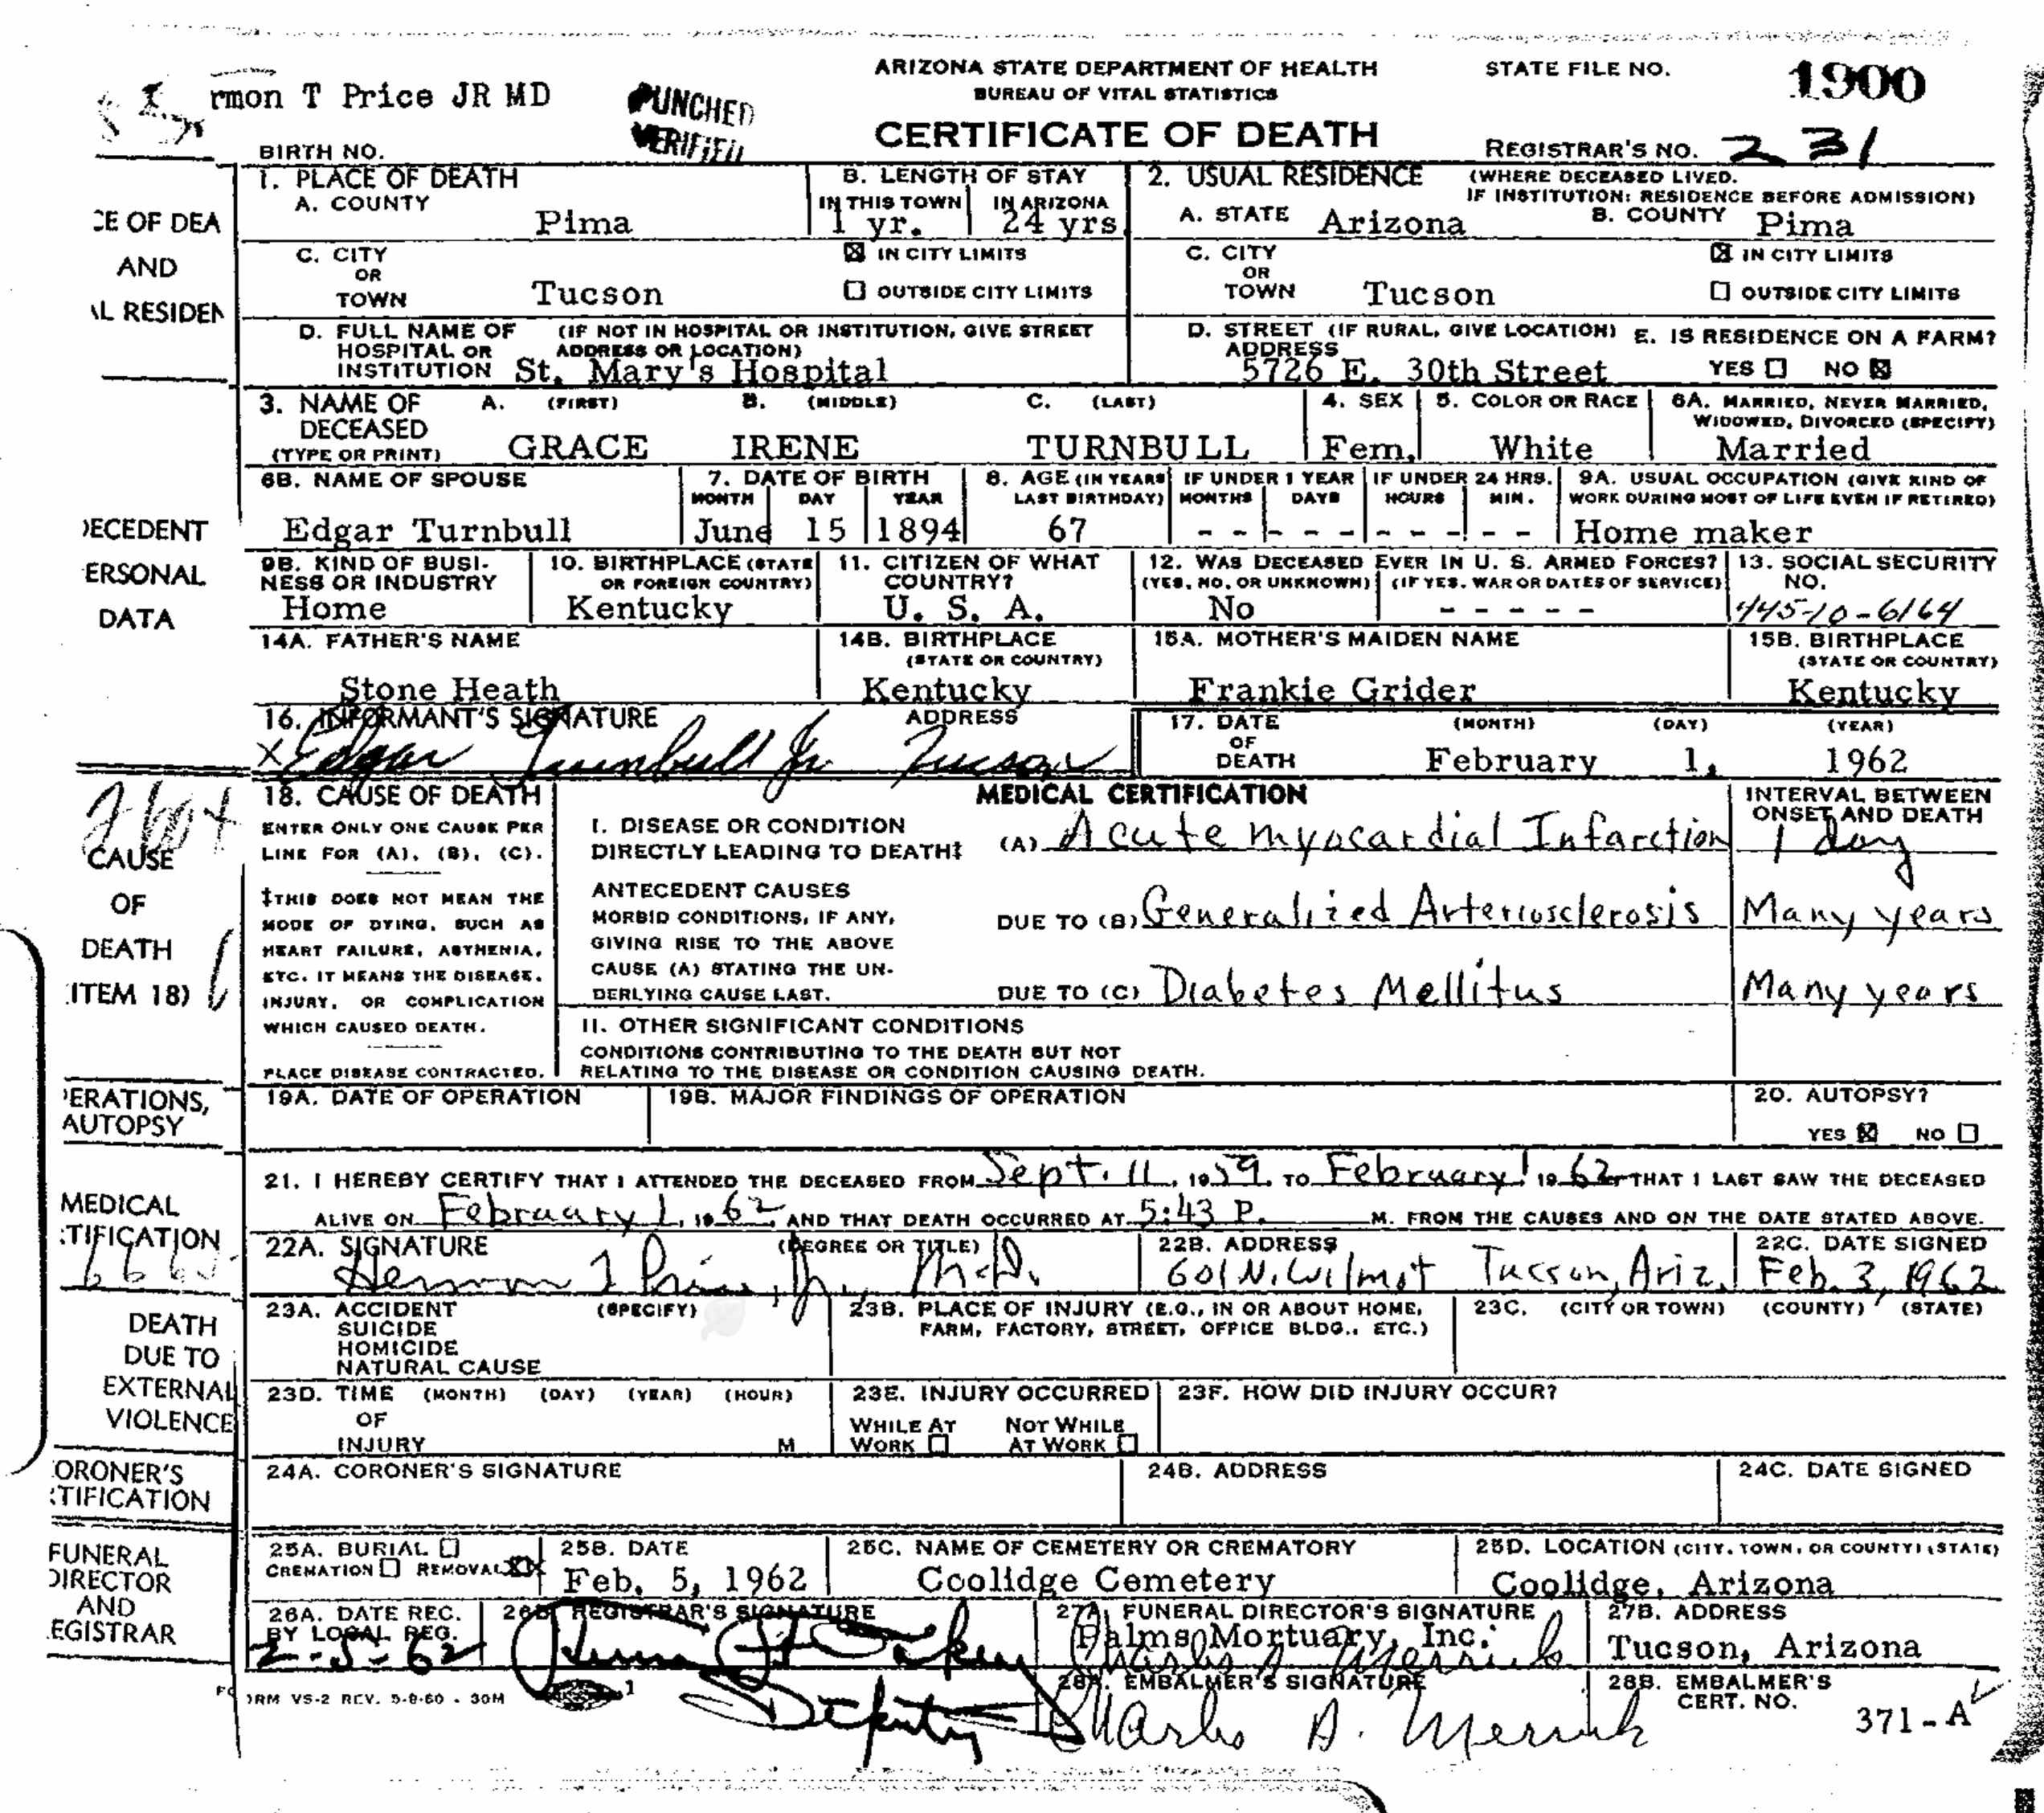 rmon T Price JR MD
PUNCHED
VERIFIED
ARIZONA STATE DEPARTMENT OF HEALTH
BUREAU OF VITAL STATISTICS
CERTIFICATE OF DEATH
STATE FILE NO. 1900
REGISTRAR'S NO. 231
BIRTH NO.
CE OF DEA
AND
AL RESIDEN
1. PLACE OF DEATH
A. COUNTY Pima
B. LENGTH OF STAY
IN THIS TOWN 1 yr.
IN ARIZONA 24 yrs.
2. USUAL RESIDENCE (WHERE DECEASED LIVED.
IF INSTITUTION: RESIDENCE BEFORE ADMISSION)
A. STATE Arizona
B. COUNTY Pima
C. CITY OR TOWN Tucson
☒ IN CITY LIMITS
☐ OUTSIDE CITY LIMITS
C. CITY OR TOWN Tucson
☒ IN CITY LIMITS
☐ OUTSIDE CITY LIMITS
D. FULL NAME OF HOSPITAL OR INSTITUTION (IF NOT IN HOSPITAL OR INSTITUTION, GIVE STREET ADDRESS OR LOCATION)
St. Mary's Hospital
D. STREET ADDRESS (IF RURAL, GIVE LOCATION)
5726 E. 30th Street
E. IS RESIDENCE ON A FARM?
YES ☐ NO ☒
DECEDENT
ERSONAL
DATA
3. NAME OF DECEASED (TYPE OR PRINT)
A. (FIRST) GRACE
B. (MIDDLE) IRENE
C. (LAST) TURNBULL
4. SEX Fem.
5. COLOR OR RACE White
6A. MARRIED, NEVER MARRIED, WIDOWED, DIVORCED (SPECIFY)
Married
6B. NAME OF SPOUSE
Edgar Turnbull
7. DATE OF BIRTH
MONTH DAY YEAR
June 15 1894
8. AGE (IN YEARS LAST BIRTHDAY) 67
IF UNDER 1 YEAR MONTHS DAYS
IF UNDER 24 HRS. HOURS MIN.
- - - - - - - - -
9A. USUAL OCCUPATION (GIVE KIND OF WORK DURING MOST OF LIFE EVEN IF RETIRED)
Home maker
9B. KIND OF BUSINESS OR INDUSTRY
Home
10. BIRTHPLACE (STATE OR FOREIGN COUNTRY)
Kentucky
11. CITIZEN OF WHAT COUNTRY?
U. S. A.
12. WAS DECEASED EVER IN U. S. ARMED FORCES?
(YES, NO, OR UNKNOWN) No
(IF YES, WAR OR DATES OF SERVICE) - - - - -
13. SOCIAL SECURITY NO.
445-10-6164
14A. FATHER'S NAME
Stone Heath
14B. BIRTHPLACE (STATE OR COUNTRY)
Kentucky
15A. MOTHER'S MAIDEN NAME
Frankie Grider
15B. BIRTHPLACE (STATE OR COUNTRY)
Kentucky
16. INFORMANT'S SIGNATURE ADDRESS
X Edgar Turnbull Jr. Tucson
17. DATE OF DEATH (MONTH) (DAY) (YEAR)
February 1, 1962
CAUSE
OF
DEATH
ITEM 18)
18. CAUSE OF DEATH
ENTER ONLY ONE CAUSE PER
LINE FOR (A), (B), (C).
‡THIS DOES NOT MEAN THE
MODE OF DYING, SUCH AS
HEART FAILURE, ASTHENIA,
ETC. IT MEANS THE DISEASE,
INJURY, OR COMPLICATION
WHICH CAUSED DEATH.
PLACE DISEASE CONTRACTED.
MEDICAL CERTIFICATION
INTERVAL BETWEEN
ONSET AND DEATH
I. DISEASE OR CONDITION
DIRECTLY LEADING TO DEATH‡ (A) Acute Myocardial Infarction 1 day
ANTECEDENT CAUSES
MORBID CONDITIONS, IF ANY,
GIVING RISE TO THE ABOVE
CAUSE (A) STATING THE UN-
DERLYING CAUSE LAST.
DUE TO (B) Generalized Arteriosclerosis Many years
DUE TO (C) Diabetes Mellitus Many years
II. OTHER SIGNIFICANT CONDITIONS
CONDITIONS CONTRIBUTING TO THE DEATH BUT NOT
RELATING TO THE DISEASE OR CONDITION CAUSING DEATH.
ERATIONS,
AUTOPSY
19A. DATE OF OPERATION
19B. MAJOR FINDINGS OF OPERATION
20. AUTOPSY?
YES ☒ NO ☐
MEDICAL
TIFICATION
21. I HEREBY CERTIFY THAT I ATTENDED THE DECEASED FROM Sept. 11, 1959, TO February 1 1962 THAT I LAST SAW THE DECEASED
ALIVE ON February 1, 1962, AND THAT DEATH OCCURRED AT 5:43 P. M. FROM THE CAUSES AND ON THE DATE STATED ABOVE.
22A. SIGNATURE (DEGREE OR TITLE)
Hermon T Price, Jr., M.D.
22B. ADDRESS
601 N. Wilmot Tucson, Ariz.
22C. DATE SIGNED
Feb. 3, 1962
DEATH
DUE TO
EXTERNAL
VIOLENCE
23A. ACCIDENT (SPECIFY)
SUICIDE
HOMICIDE
NATURAL CAUSE
23B. PLACE OF INJURY (E.G., IN OR ABOUT HOME,
FARM, FACTORY, STREET, OFFICE BLDG., ETC.)
23C. (CITY OR TOWN) (COUNTY) (STATE)
23D. TIME OF INJURY (MONTH) (DAY) (YEAR) (HOUR) M
23E. INJURY OCCURRED
WHILE AT WORK ☐ NOT WHILE AT WORK ☐
23F. HOW DID INJURY OCCUR?
ORONER'S
TIFICATION
24A. CORONER'S SIGNATURE
24B. ADDRESS
24C. DATE SIGNED
FUNERAL
DIRECTOR
AND
EGISTRAR
25A. BURIAL ☐
CREMATION ☐ REMOVAL XX
25B. DATE
Feb. 5, 1962
25C. NAME OF CEMETERY OR CREMATORY
Coolidge Cemetery
25D. LOCATION (CITY, TOWN, OR COUNTY) (STATE)
Coolidge, Arizona
26A. DATE REC. BY LOCAL REG.
2-5-62
26B. REGISTRAR'S SIGNATURE
Deputy
27A. FUNERAL DIRECTOR'S SIGNATURE
Palms Mortuary, Inc.
Charles A. Merrick
27B. ADDRESS
Tucson, Arizona
28A. EMBALMER'S SIGNATURE
Charles A. Merrick
28B. EMBALMER'S CERT. NO.
371-A
FORM VS-2 REV. 5-8-60 - 30M